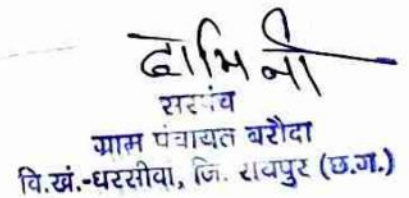 दामिनी
सरपंच
ग्राम पंचायत बरौदा
वि.खं.-धरसीवा, जि. रायपुर (छ.ग.)